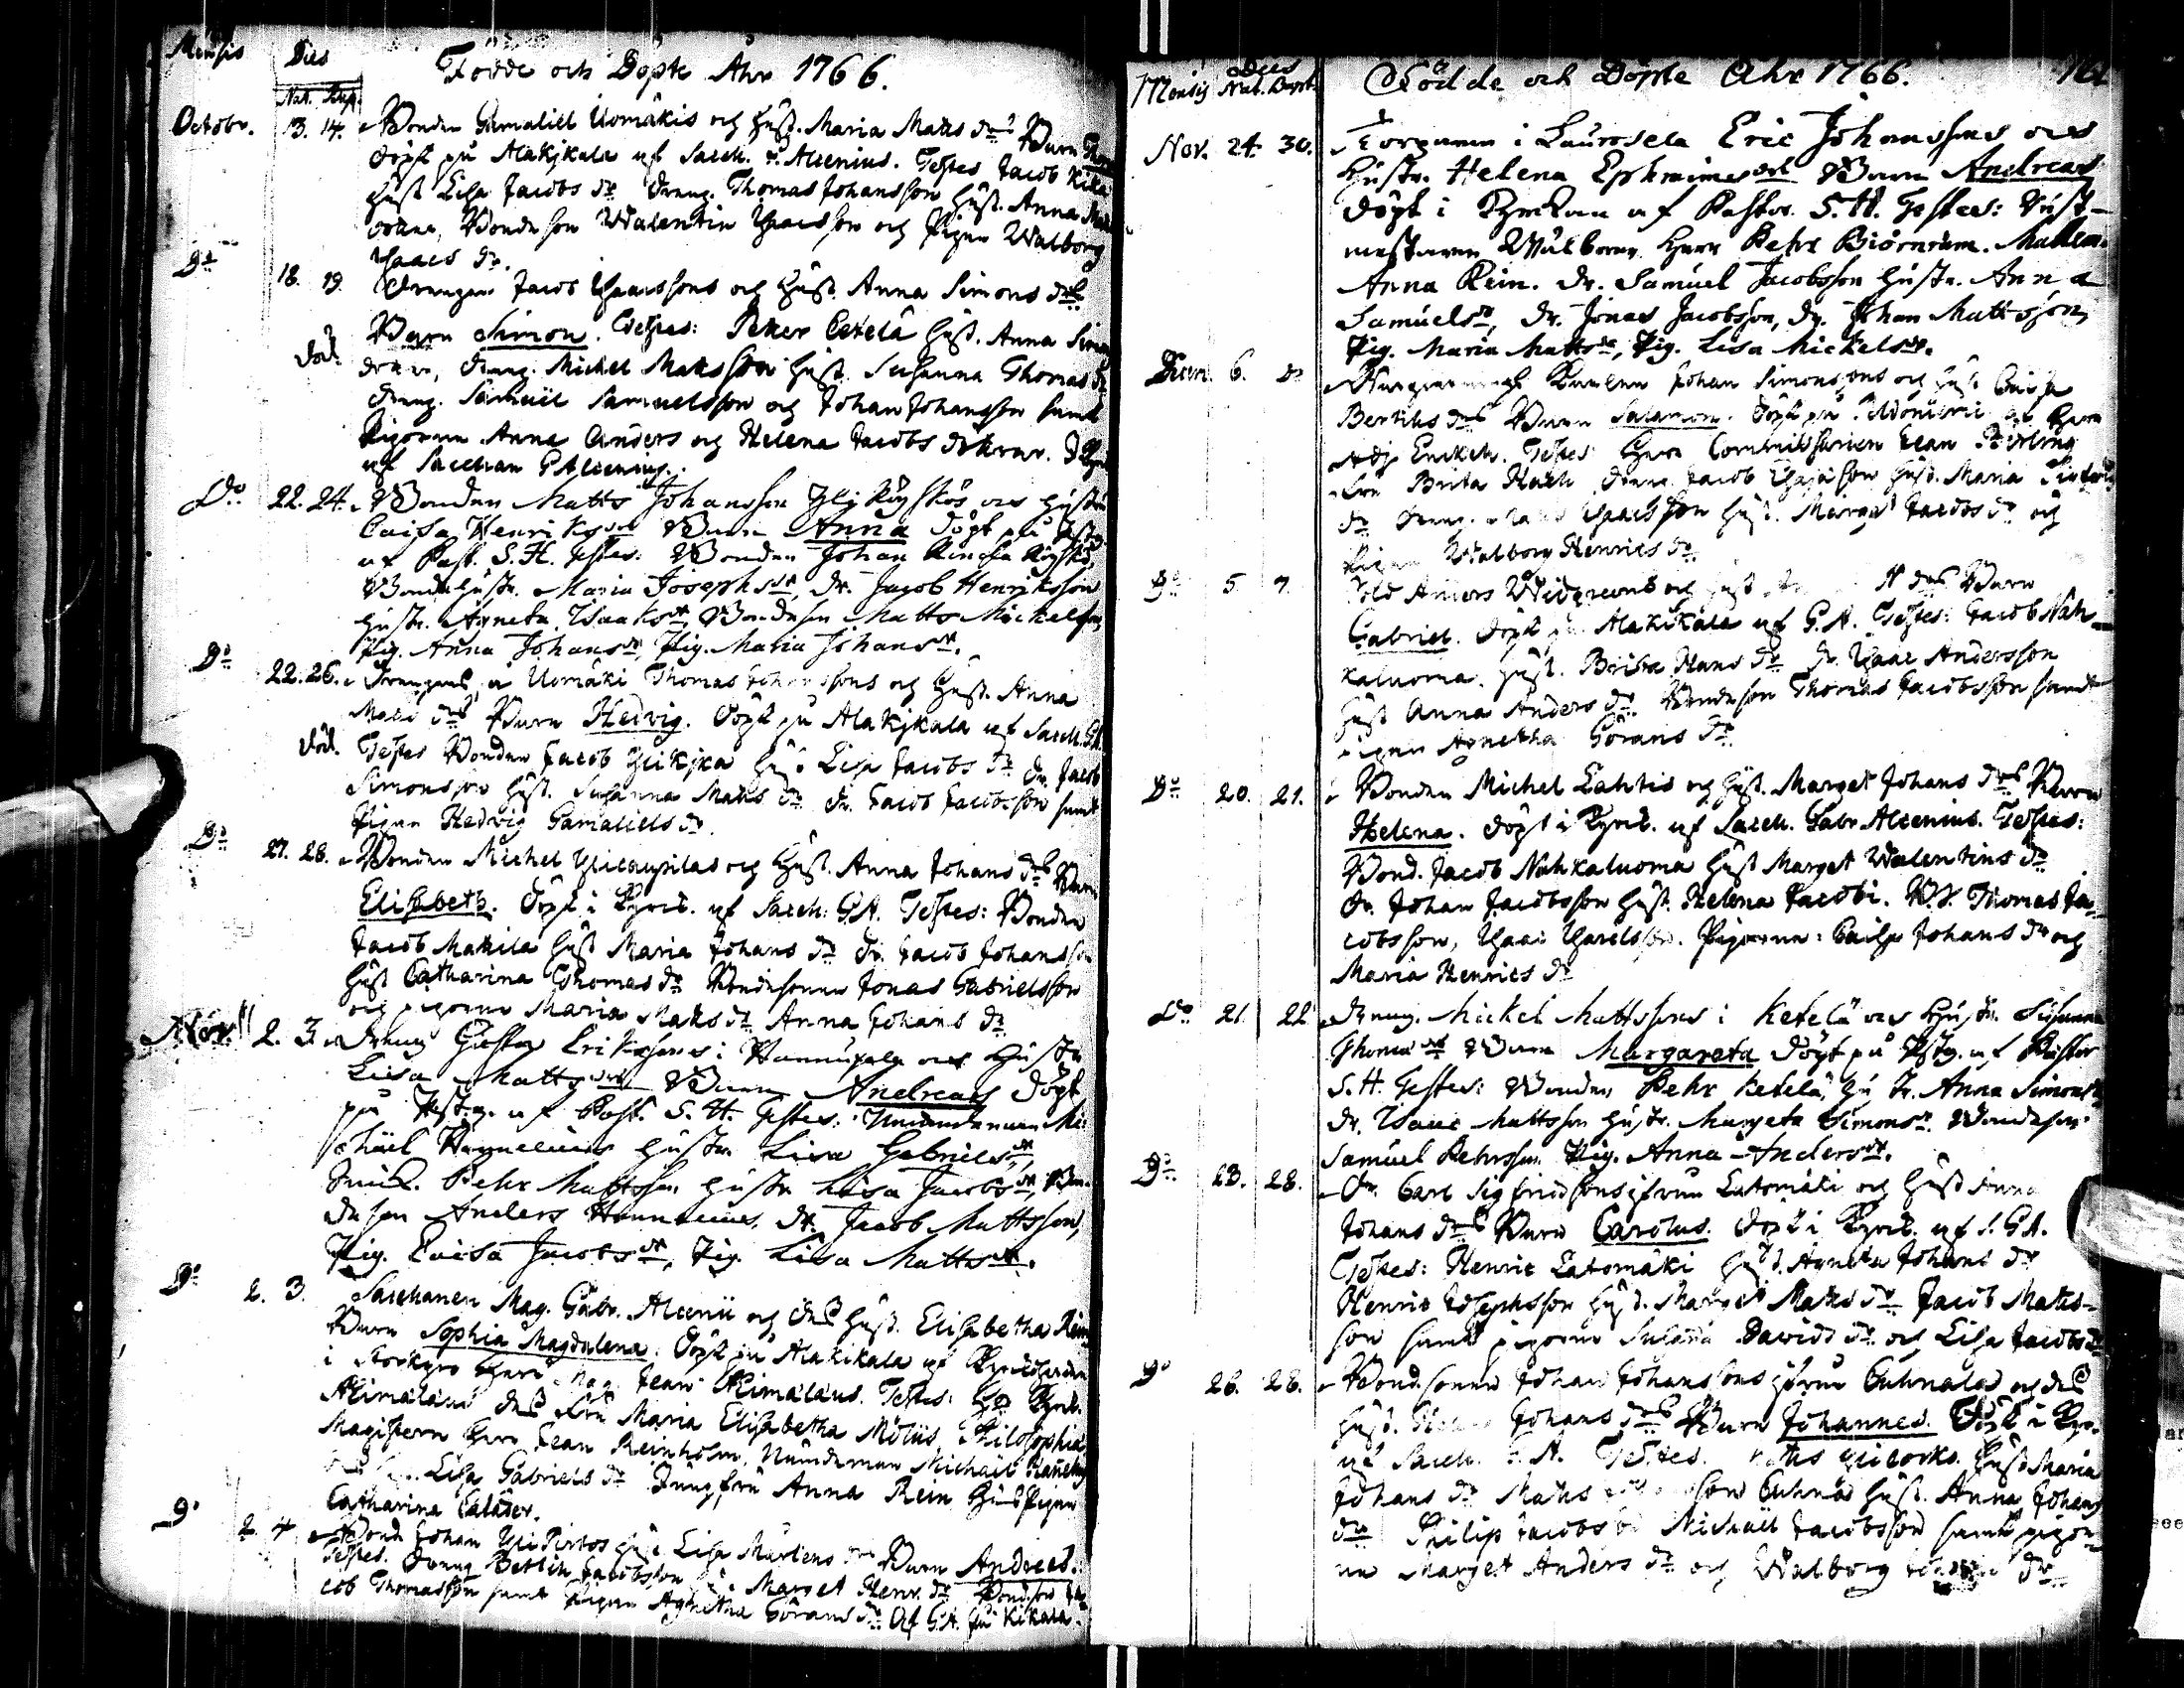 Mensis Dies Födde och Döpte Åhr 1766.
Nat. Bapt.
Octobr. 13. 14. Bonden Gamaliel Uomäkis och Hust. Maria Matts drs Barn Thom
döpt på Alakikala af Sacell. Alcenius. Testes Jacob Kika
Hust Lisa Jacobs dr Dreng. Thomas Johansson Hust. Anna Matts
dotter, Bonde son Walentin Isacsson och Pigan Walborg
Isacs dr.
Do 18. 19. Drengen Jacob Isacssons och Hust. Anna Simons drs
Barn Simon. Testes: Petter Ketelä Hust. Anna Simons
död. dotter, Dreng. Michel Matsson Hust. Susanna Thomas dr
Dreng. Samuel Samuelsson och Johan Johansson samt
Pigorna Anna Anders och Helena Jacobs döttrar. Döpt
af Sacellan G Alcenius.
Do 22. 24. Bonden Matts Johansson Yli Köyskös och Hustr.
Caisa Henriksdrs Barn Anna döpt på Prstg.
af Past. S. H. Testes: Bonden Johan Rencka Köyskö,
Bondehustr. Maria Josephsdr, Dr. Jacob Henriksson
Hustr. Agneta Isaksdr, Bondeson Matts Mickelsson,
Pig. Anna Johansdr, Pig. Maria Johansdr.
Do 22. 26. Drengens å Uomäki Thomas Johanssons och Hust. Anna
Mats drs Barn Hedvig. Döpt på Alakjkala af Sacell. G.A.
död. Testes Bonden Jacob Ylikjka Hust Lisa Jacobs dr Dr. Jacob
Simonsson Hust. Susanna Matts dr Dr. Jacob Jacobsson samt
Pigan Hedvig Gamaliels dr.
Do 27. 28. Bonden Michel Ylikaupilas och Hust. Anna Johans drs Barn
Elisabeth. Döpt i Kyrck. af Sacell: G.A. Testes: Bonden
Jacob Makila Hust Maria Johans dr Dr. Jacob Johansson
Hust Catharina Thomas dr Bondesonen Jonas Gabrielsson
och pigorna Maria Matts dr Anna Johans dr
Nov. 2. 3. Dreng Gustav Erikssons i Hannuxela och Hustr
Lisa Mattsdrs Barn Andreas döpt
på Prstg. af Past. S. H. Testes: Nämndeman Mi-
chael Hannelius Hustr. Lisa Gabrielsdr,
Smed. Pehr Mattsson Hustr Lisa Jacobsdr, Bon-
deson Anders Hannelius, Dr. Jacob Mattsson,
Pig. Caisa Jacobsdr, Pig. Lisa Mattsdr.
Do 2. 3. Sacellanen Mag. Gabr. Alcenii och des Hust. Elisabetha Rein
Barn Sophia Magdalena. Döpt på Alakikala af Kyrckoherden
i Storkyro Herr Mag. Jean Aimalæus. Testes: Hr Kyrck.
Aimalæus des Fru Maria Elisabetha Moliis, Philosophiæ
Magistern Herr Jean Reinholm, Nämdeman Michael Hannelius
Lisa Gabriels dr Jungfru Anna Rein Hus Pigan
Catharina Calåser.
Do 2. 4. Bond Johan Yli Pirtos Hust. Lisa Mårtens drs Barn Andreas.
Testes. Dreng Bertill Jacobsson Hust. Marget Henr. dr Bondson Ja-
cob Thomasson samt Pigan Agnetha Görans dr. Af G.A. på Kikala.
Mensis Dies Nat. Bapt. Födde och Döpte Åhr 1766.
Nov. 24. 30. Torparen i Laurosela Eric Johanssons och
Hustr. Helena Ephraimsdrs Barn Andreas
döpt i Kyrckan af Pastor. S. H. Testes: Rust-
mästaren Wälborne Herr Pehr Biörnram. Mademo.
Anna Rein. Dr. Samuel Jacobsson Hustr. Anna
Samuelsdr, Dr. Jonas Jacobsson, Dr. Johan Mattsson,
Pig. Maria Mattsdr, Pig. Lisa Mickelsdr.
Decem. 6. Do Johan Simonssons och Hust Caisa
Bertils drs Barn Salamon. Döpt på af Herr
Adj Enckell. Testes Herr Jean
Fru Brita Dreng. Jacob Hust. Maria
dr Dreng. Isacsson Hust. Marget Jacobs dr och
Pigan Walborg Henrics dr
Do 5 7. Sold Anders Widgrens och Hust drs Barn
Gabriel. Döpt på Alakikala af G. A. Testes: Jacob Nah-
kaluoma. Hust. Brita Hans dr Dr. Isac Andersson
Hust Anna Anders dr. Bondeson Thomas Jacobsson samt
Pigan Agnetha Görans dr
Do 20. 21. Bonden Michel Lahtis och Hust. Marget Johans drs Barn
Helena. Döpt i Kyrck. af Sacell. Gabr Alcenius. Testes:
Bond. Jacob Nahkaluoma Hust Marget Walentins dr
Dr. Johan Jacobsson Hust. Helena Jacobi. B.S. Thomas Ja-
cobsson, Isac Isacsson. Pigorna: Caisa Johans dr och
Maria Henrics dr
Do 21. 22 Dreng. Mickel Mattssons i Ketelä och Hustr. Susanna
Thomædrs Barn Margareta döpt på Prstg. af Pastor
S. H. Testes: Bonden Pehr Ketelä, Hustr. Anna Simonsdr
Dr. Isaac Mattsson Hustr. Margeta Simonsdr. Bondeson
Samuel Pehrsson Pig. Anna Andersdr.
Do 23. 28. Dr. Carl Sigfridssons ifrån Latomäki och Hust Anna
Johans drs Barn Carolus. Döpt i Kyrck. af S. GA.
Testes: Henric Latomäki Hust. Agneta Johans dr
Henric Josephsson Hust. Marget Matts dr Jacob Mats-
son samt pigorna Susana Davids dr och Lisa Jacobs dr
Do 26. 28. Bondsonen Johan Johanssons ifrån Cuhnalas och des
Hust. Johans drs Barn Johannes. Döpt i Kyr.
af Sacell. G. A. Testes. Hust Maria
Johans dr Mats Hust. Anna Johans
dr Philip Jacobs Michaël Jacobsson samt pigor-
na Marget Anders dr och Walborg dr